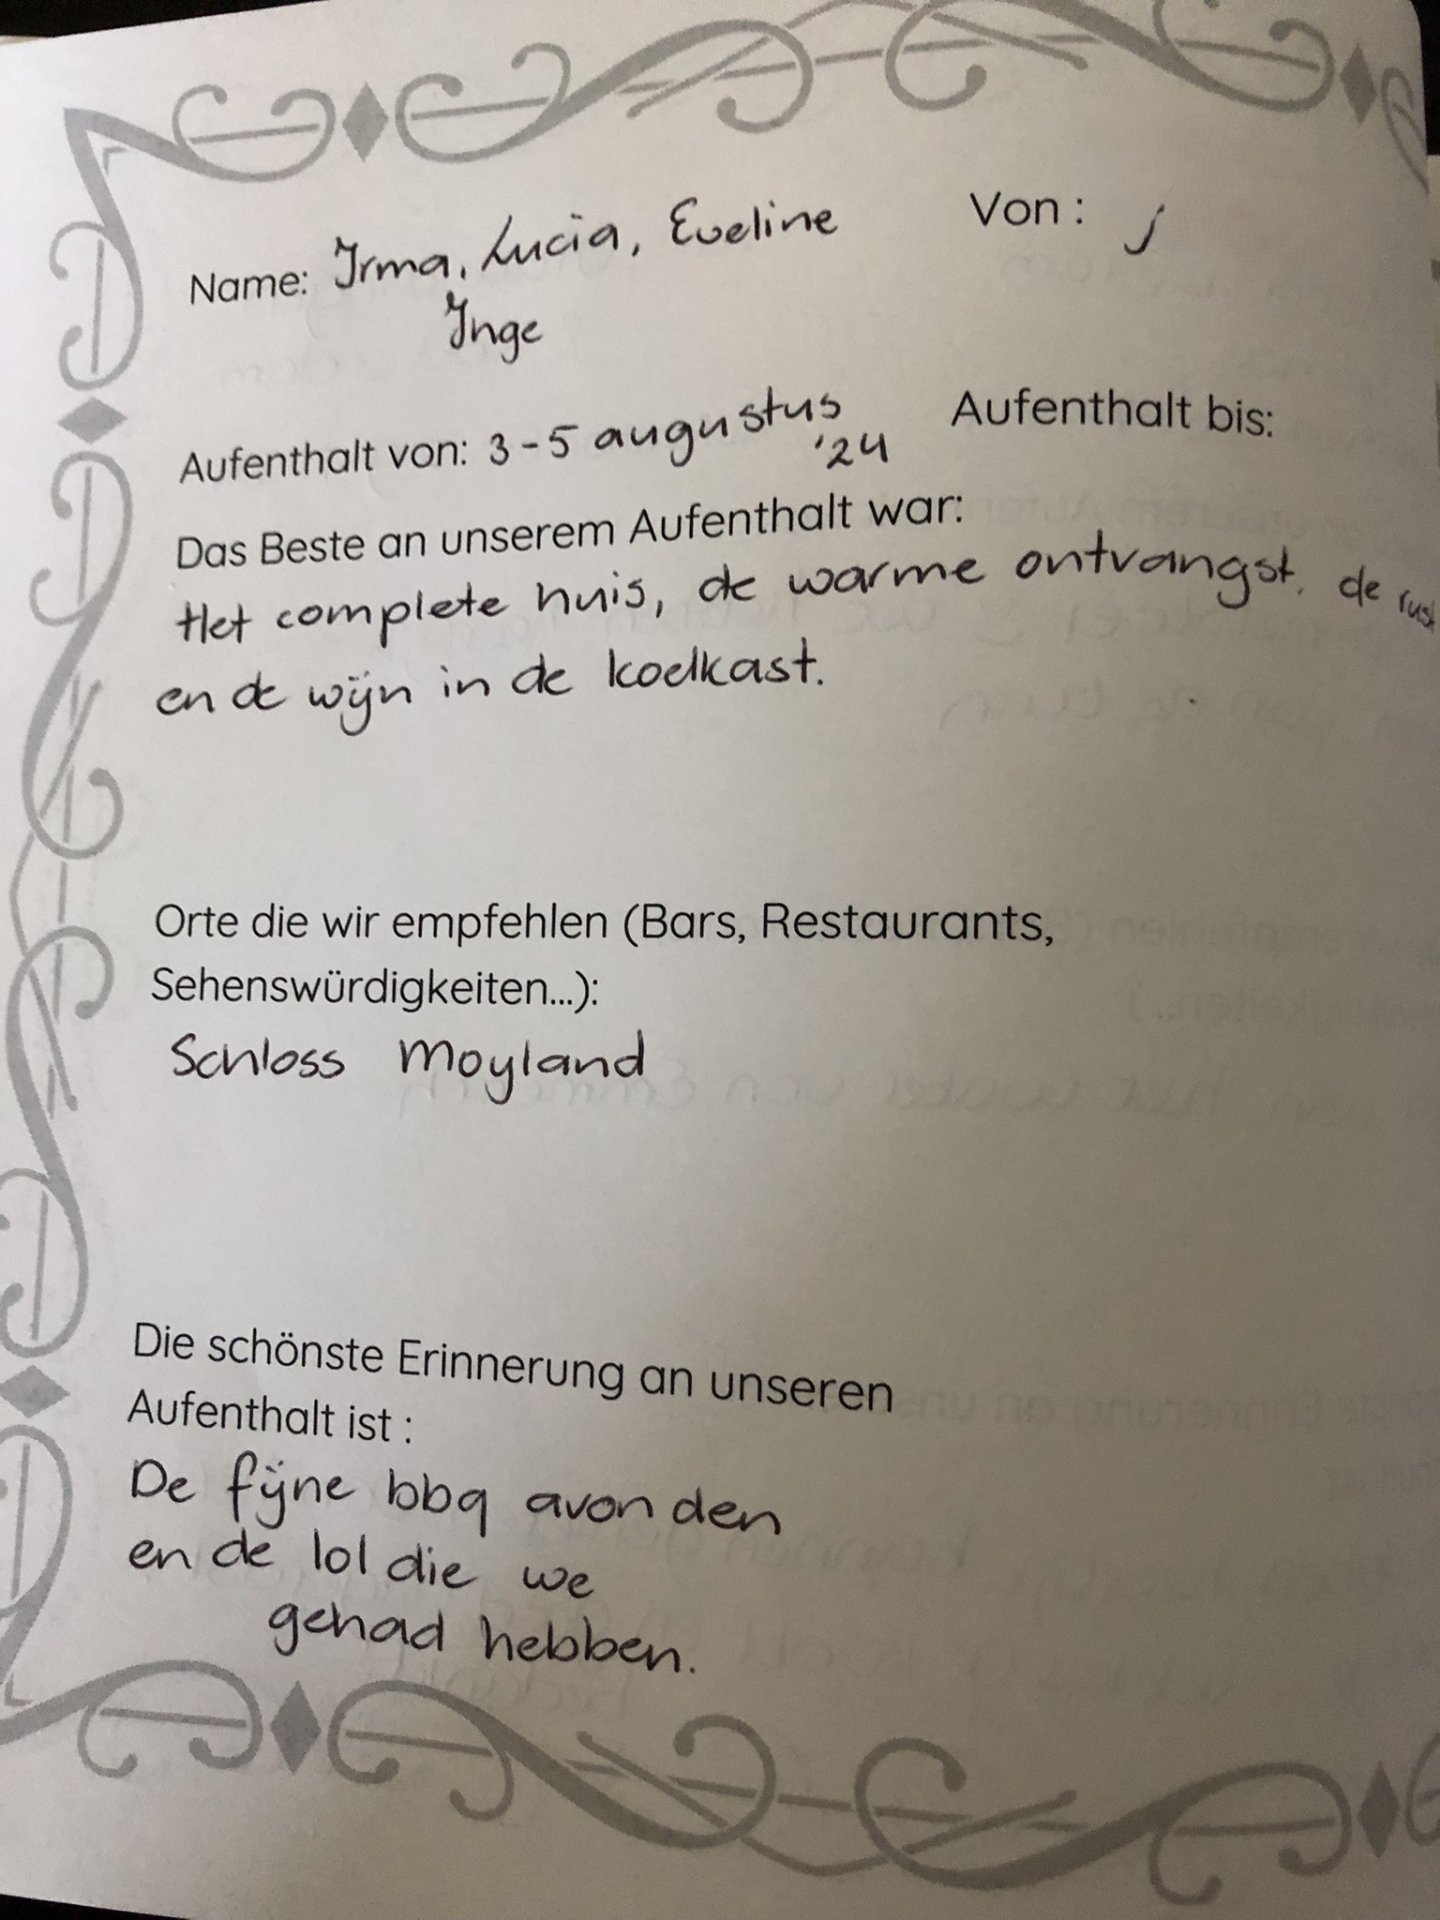 Name: Irma, Lucia, Eveline Von : j
Inge
Aufenthalt von: 3-5 augustus Aufenthalt bis:
'24
Das Beste an unserem Aufenthalt war:
Het complete huis, de warme ontvangst, de rust
en de wijn in de koelkast.
Orte die wir empfehlen (Bars, Restaurants,
Sehenswürdigkeiten...):
Schloss Moyland
Die schönste Erinnerung an unseren
Aufenthalt ist :
De fijne bbq avonden
en de lol die we
gehad hebben.